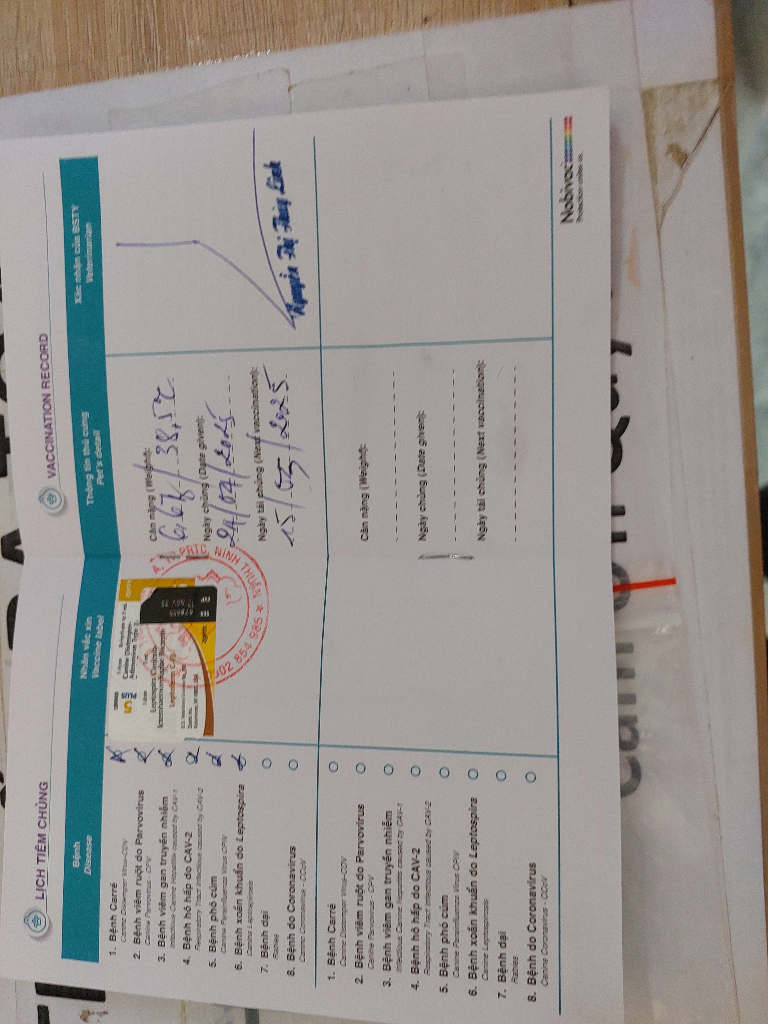 LỊCH TIÊM CHỦNG
VACCINATION RECORD
Bệnh
Disease
Nhãn vắc xin
Vaccine label
Thông tin thú cưng
Pet's detail
Xác nhận của BSTY
Veterinarian
1. Bệnh Carré
Canine Distemper Virus-CDV
2. Bệnh viêm ruột do Parvovirus
Canine Parvovirus - CPV
3. Bệnh viêm gan truyền nhiễm
Infectious Canine Hepatitis caused by CAV-1
4. Bệnh hô hấp do CAV-2
Respiratory Tract Infectious caused by CAV-2
5. Bệnh phó cúm
Canine Parainfluenza Virus CPiV
6. Bệnh xoắn khuẩn do Leptospira
Canine Leptospirosis
7. Bệnh dại
Rabies
8. Bệnh do Coronavirus
Canine Coronavirus - CCoV
Canine Distemper-
Adenovirus Type 2-
Leptospira Canicola-
NINH THUẬN
Cân nặng (Weight):
38,5°C
Ngày chủng (Date given):
24/04/2025
Ngày tái chủng (Next vaccination):
15/05/2025
Nguyễn Thị Thùy Linh
1. Bệnh Carré
Canine Distemper Virus-CDV
2. Bệnh viêm ruột do Parvovirus
Canine Parvovirus - CPV
3. Bệnh viêm gan truyền nhiễm
Infectious Canine Hepatitis caused by CAV-1
4. Bệnh hô hấp do CAV-2
Respiratory Tract Infectious caused by CAV-2
5. Bệnh phó cúm
Canine Parainfluenza Virus CPiV
6. Bệnh xoắn khuẩn do Leptospira
Canine Leptospirosis
7. Bệnh dại
Rabies
8. Bệnh do Coronavirus
Canine Coronavirus - CCoV
Cân nặng (Weight):
Ngày chủng (Date given):
Ngày tái chủng (Next vaccination):
Nobivac
Protection unites us.